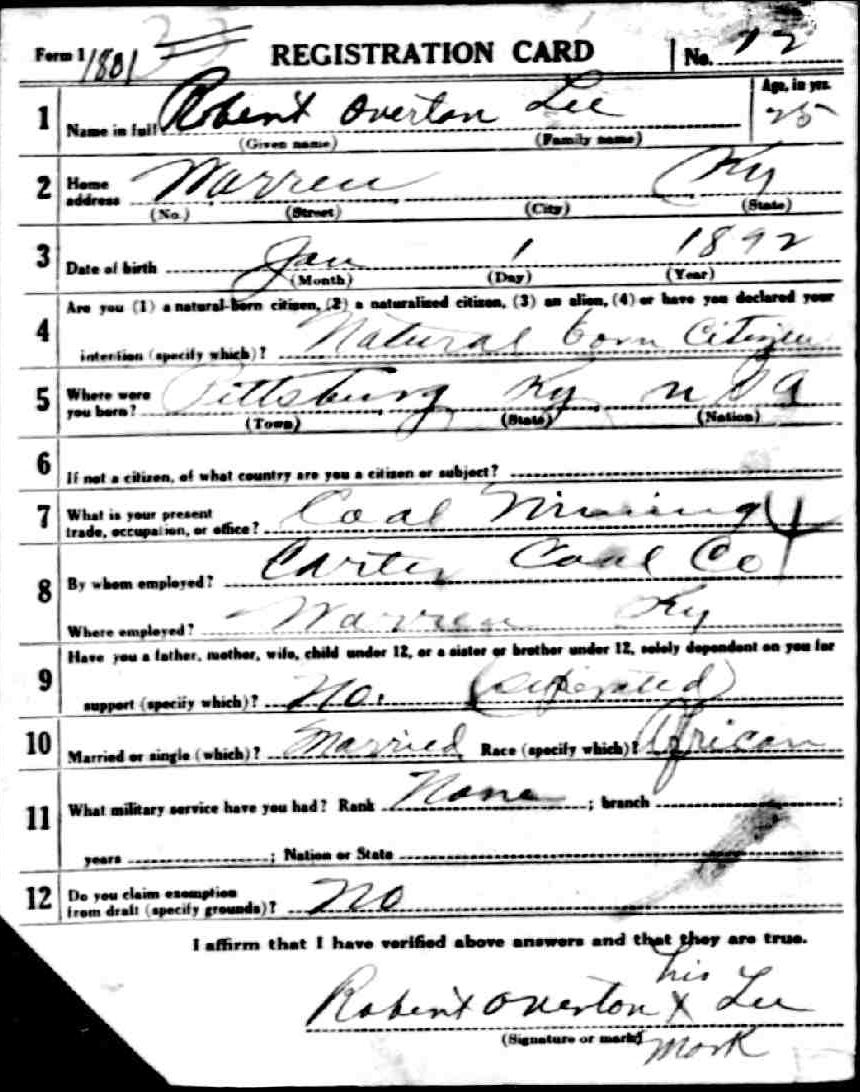 Form 1 1801 33 REGISTRATION CARD No. 72
1 Name in full Robert Overton Lee Age, in yrs. 25
(Given name) (Family name)
2 Home address Warren Ky
(No.) (Street) (City) (State)
3 Date of birth Jan 1 1892
(Month) (Day) (Year)
4 Are you (1) a natural-born citizen, (2) a naturalized citizen, (3) an alien, (4) or have you declared your
intention (specify which)? Natural born Citizen
5 Where were you born? Pittsburg Ky USA
(Town) (State) (Nation)
6 If not a citizen, of what country are you a citizen or subject?
7 What is your present trade, occupation, or office? Coal Mining 4
8 By whom employed? Carter Coal Co
Where employed? Warren Ky
9 Have you a father, mother, wife, child under 12, or a sister or brother under 12, solely dependent on you for
support (specify which)? No. (seperated)
10 Married or single (which)? Married Race (specify which)? African
11 What military service have you had? Rank None ; branch ;
years ; Nation or State
12 Do you claim exemption from draft (specify grounds)? No
I affirm that I have verified above answers and that they are true.
his
Robert Overton X Lee
(Signature or mark) mark